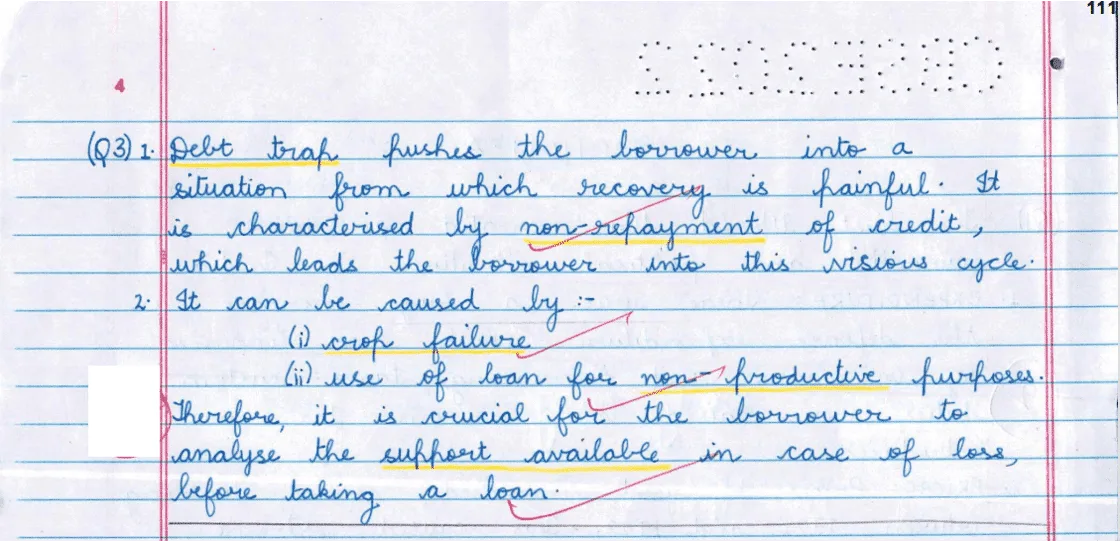 111
CBSE2022
4
(Q3) 1. Debt trap pushes the borrower into a
situation from which recovery is painful. It
is characterised by non-repayment of credit,
which leads the borrower into this visious cycle.
2. It can be caused by :-
(i) crop failure
(ii) use of loan for non-productive purposes.
Therefore, it is crucial for the borrower to
analyse the support available in case of loss,
before taking a loan.